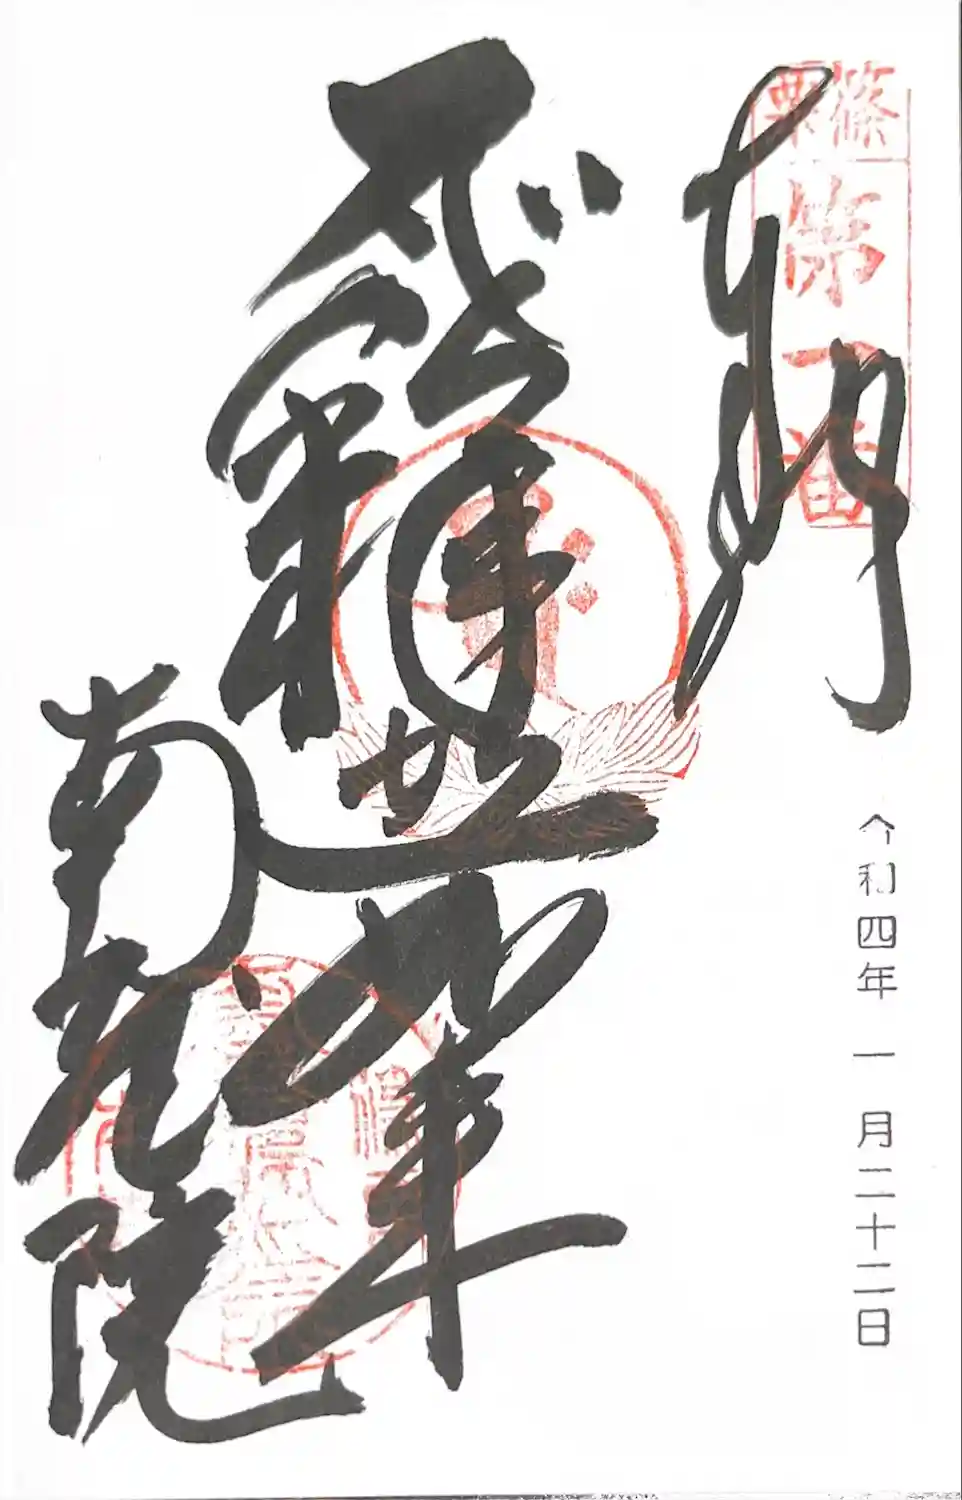 篠栗
第一番
奉拝
令和四年一月二十二日
釋迦如来
南蔵院